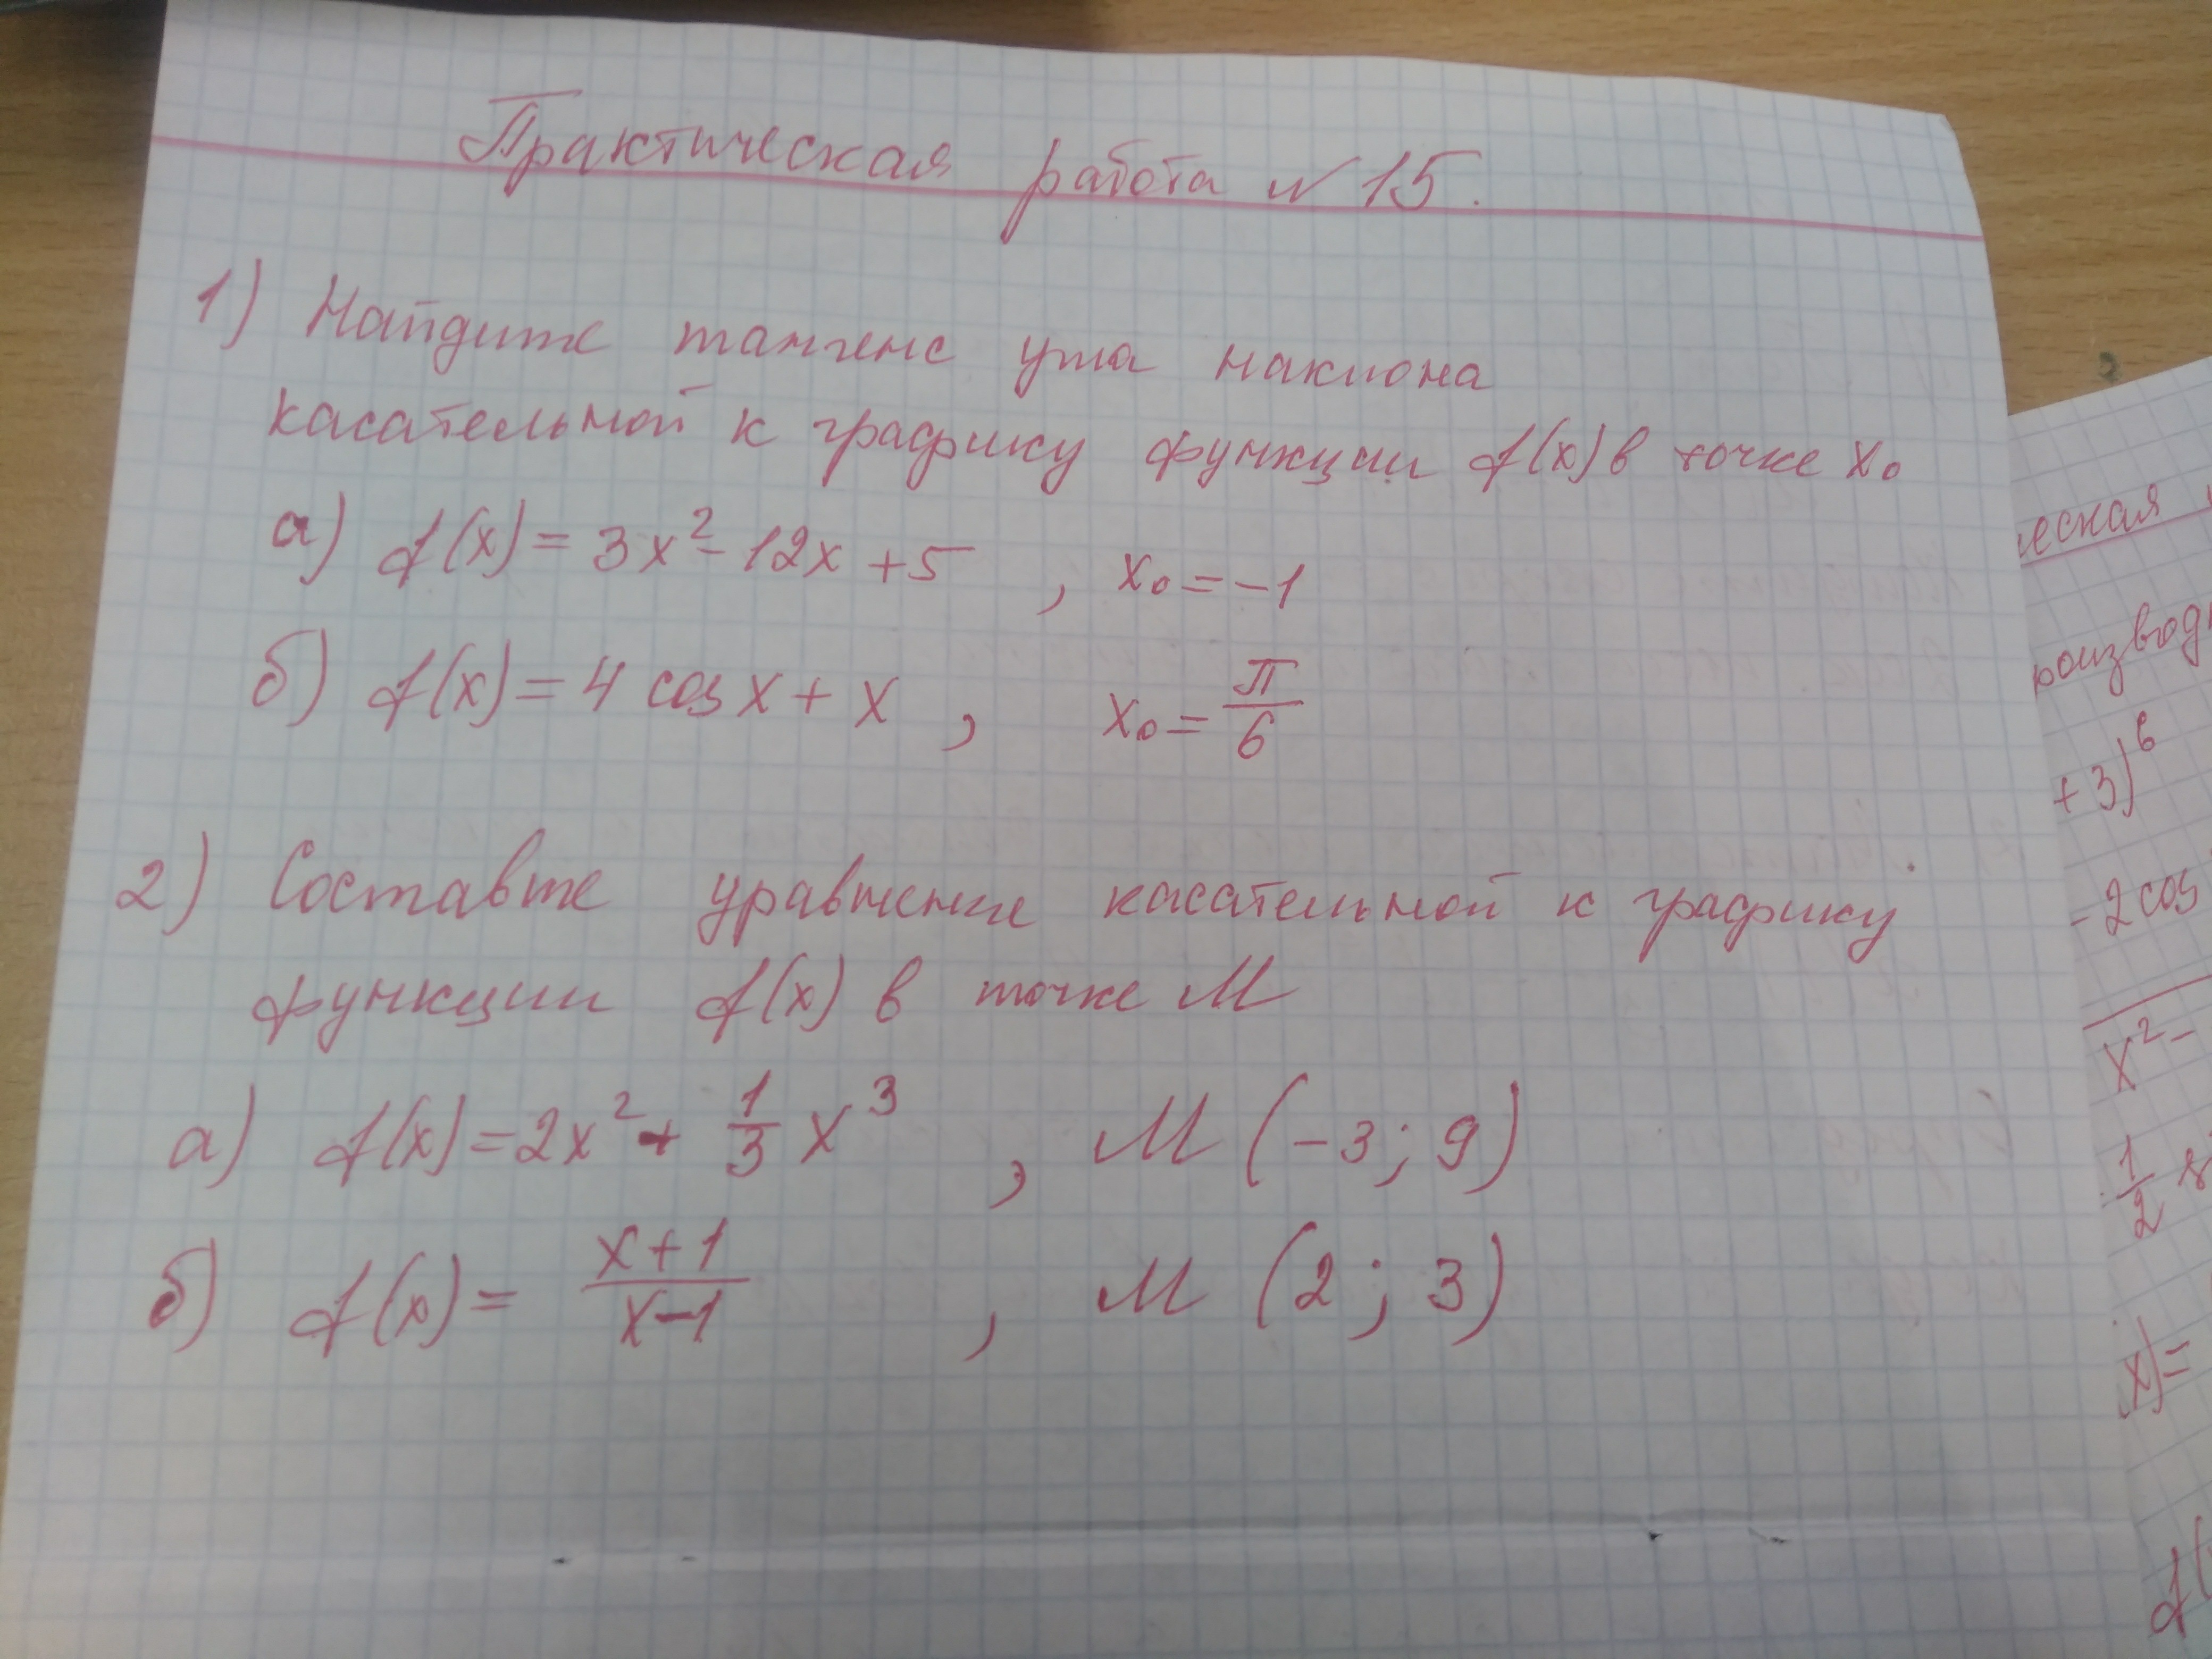 Практическая работа №15.
1) Найдите тангенс угла наклона
касательной к графику функции f(x) в точке x₀
а) f(x) = 3x² - 12x + 5 , x₀ = -1
б) f(x) = 4 cos x + x , x₀ = π/6
2) Составьте уравнение касательной к графику
функции f(x) в точке M
а) f(x) = 2x² + 1/3 x³ , M (-3; 9)
б) f(x) = (x+1)/(x-1) , M (2; 3)
еская
роизвод
+ 3)⁶
- 2 cos
x² -
1/2
x) =
f(